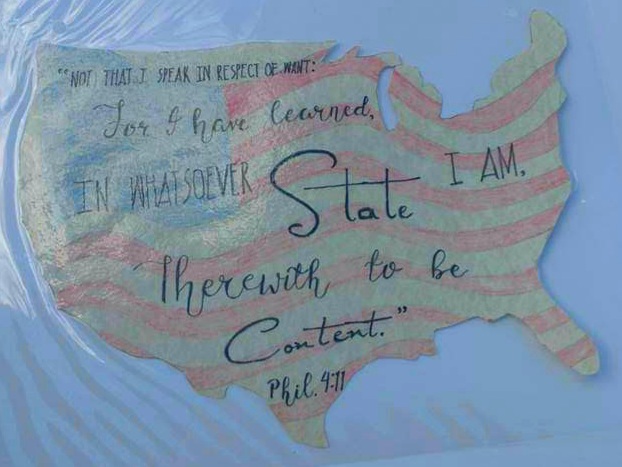 "NOT THAT I SPEAK IN RESPECT OF WANT:
For I have learned,
IN WHATSOEVER State I AM,
Therewith to be
Content."
Phil. 4:11